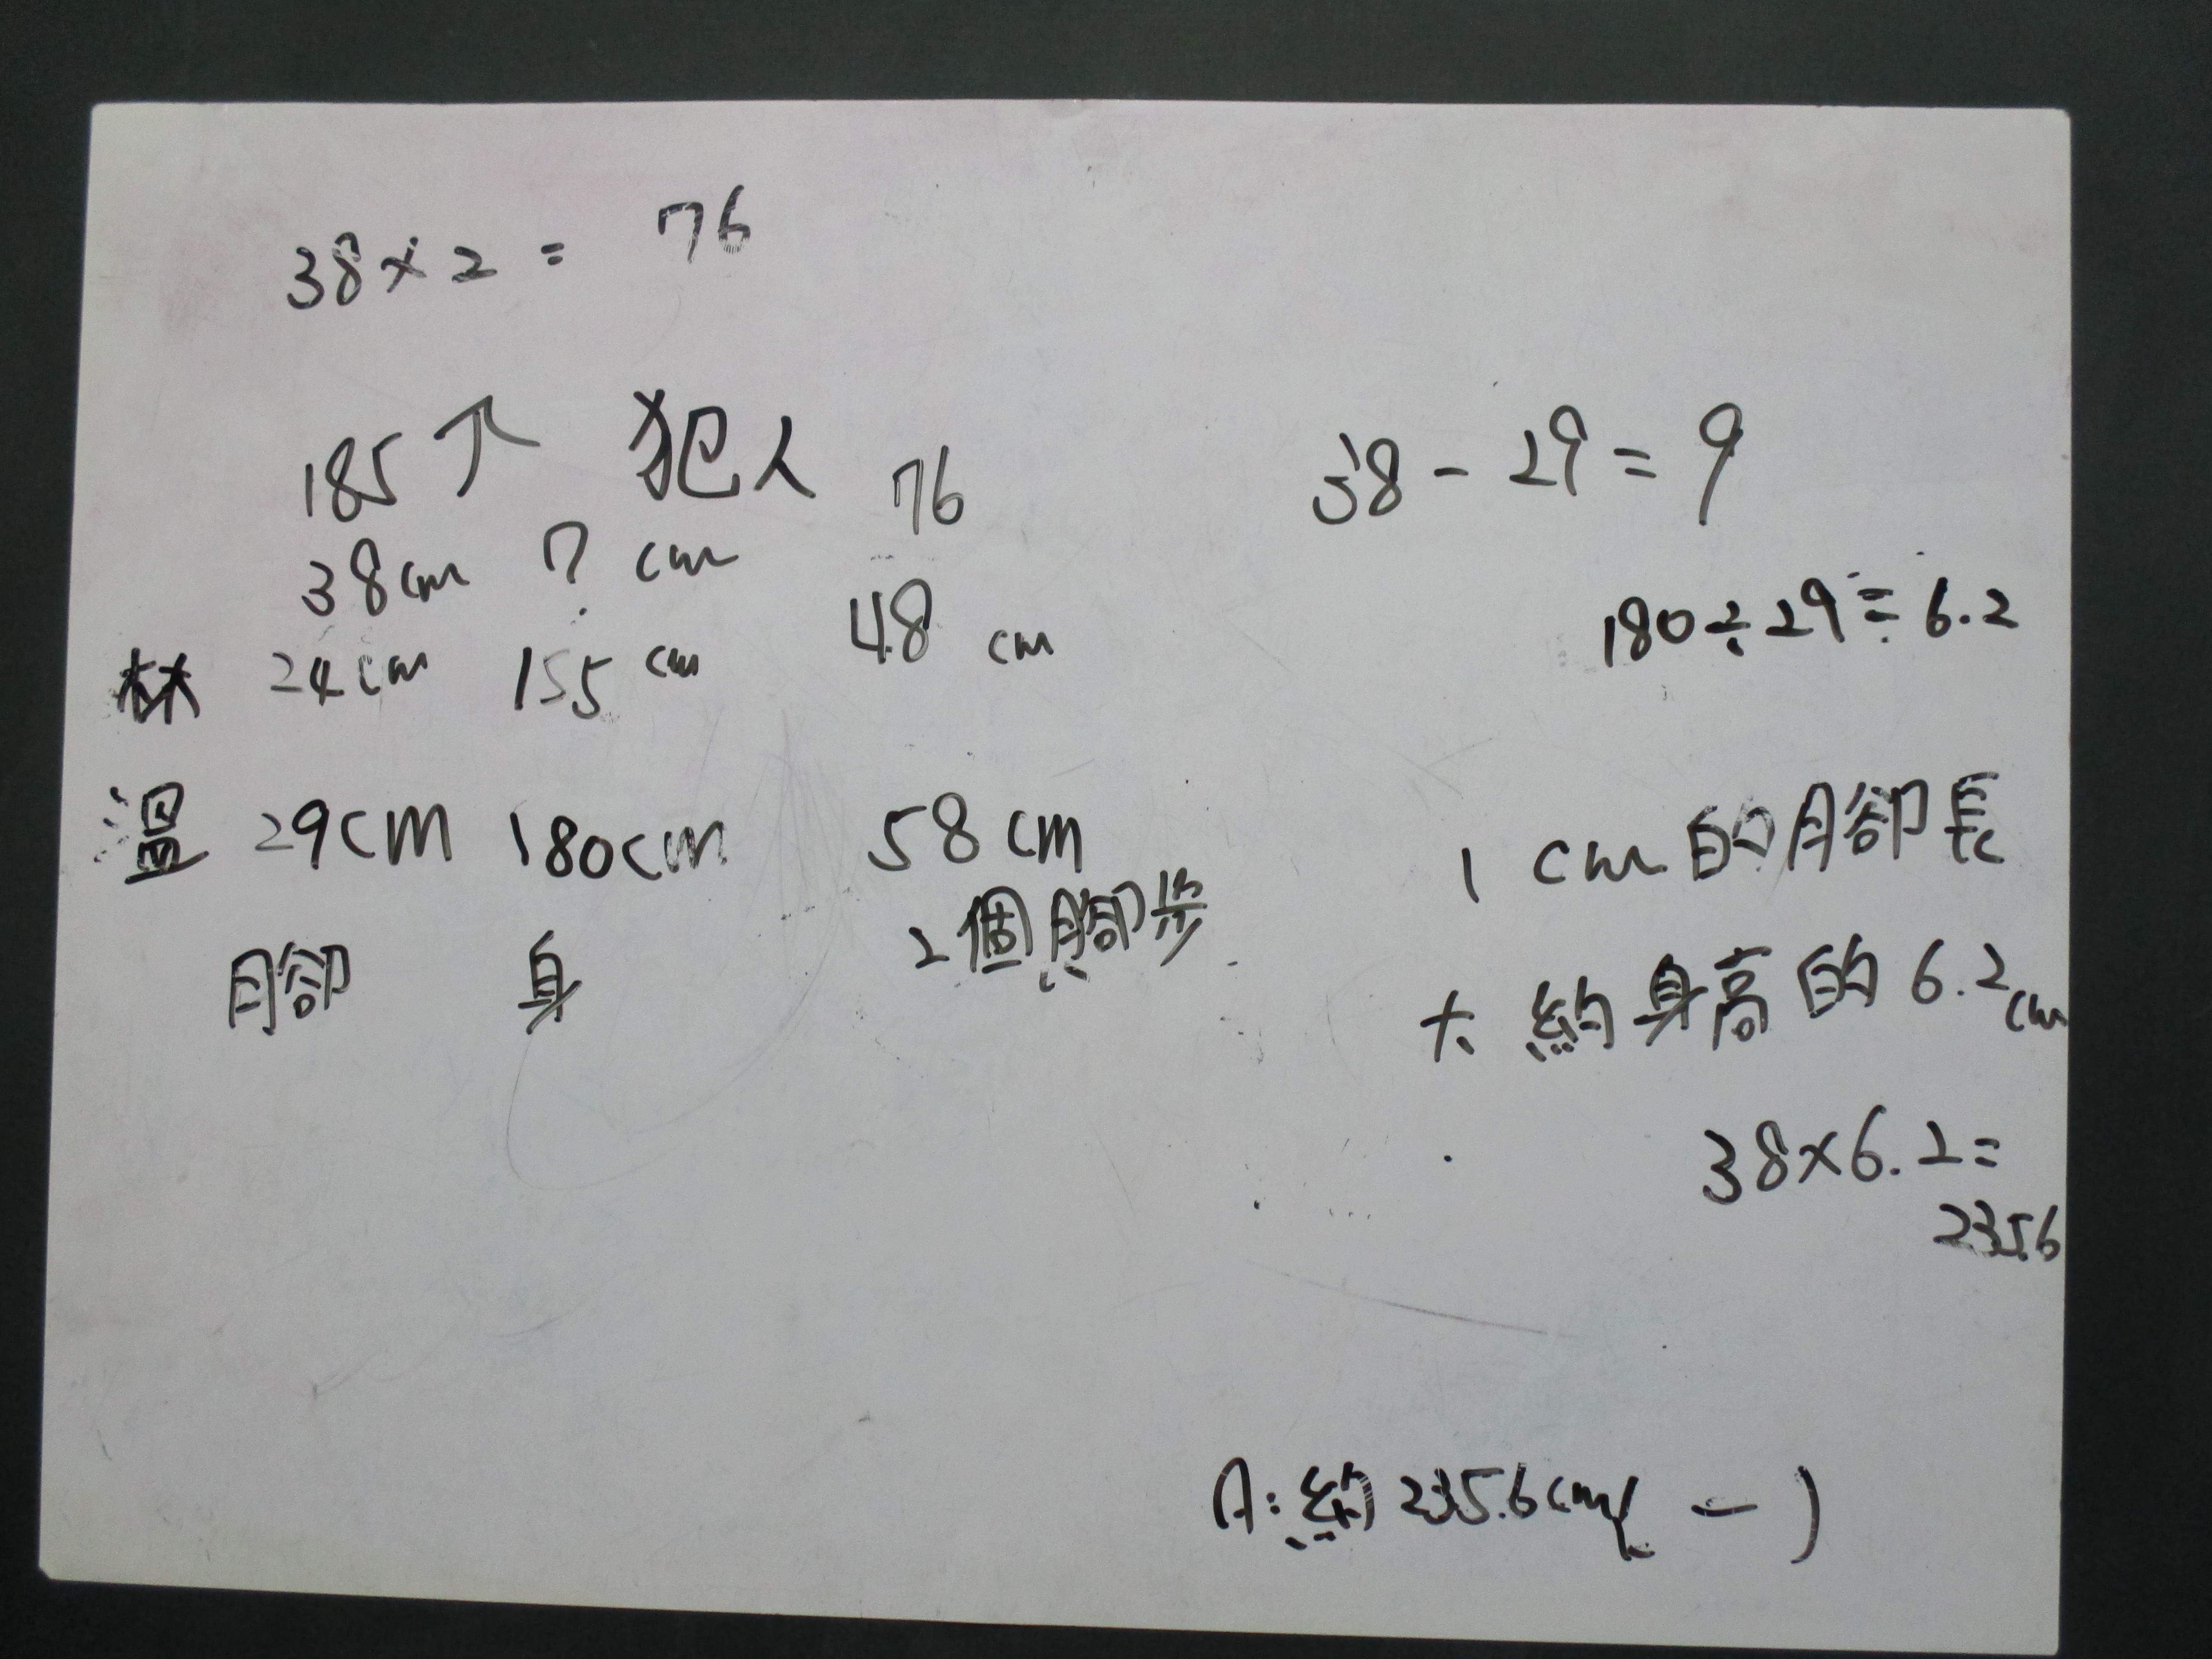 38×2= 76
185个 犯人 76
38cm ? cm
林 24cm 155cm 48 cm
溫 29cm 180cm 58cm
2個腳步
腳 身
38-29=9
180÷29≒6.2
1cm的腳長
大約身高的6.2cm
38×6.2=
235.6
A:約235.6cm(一)